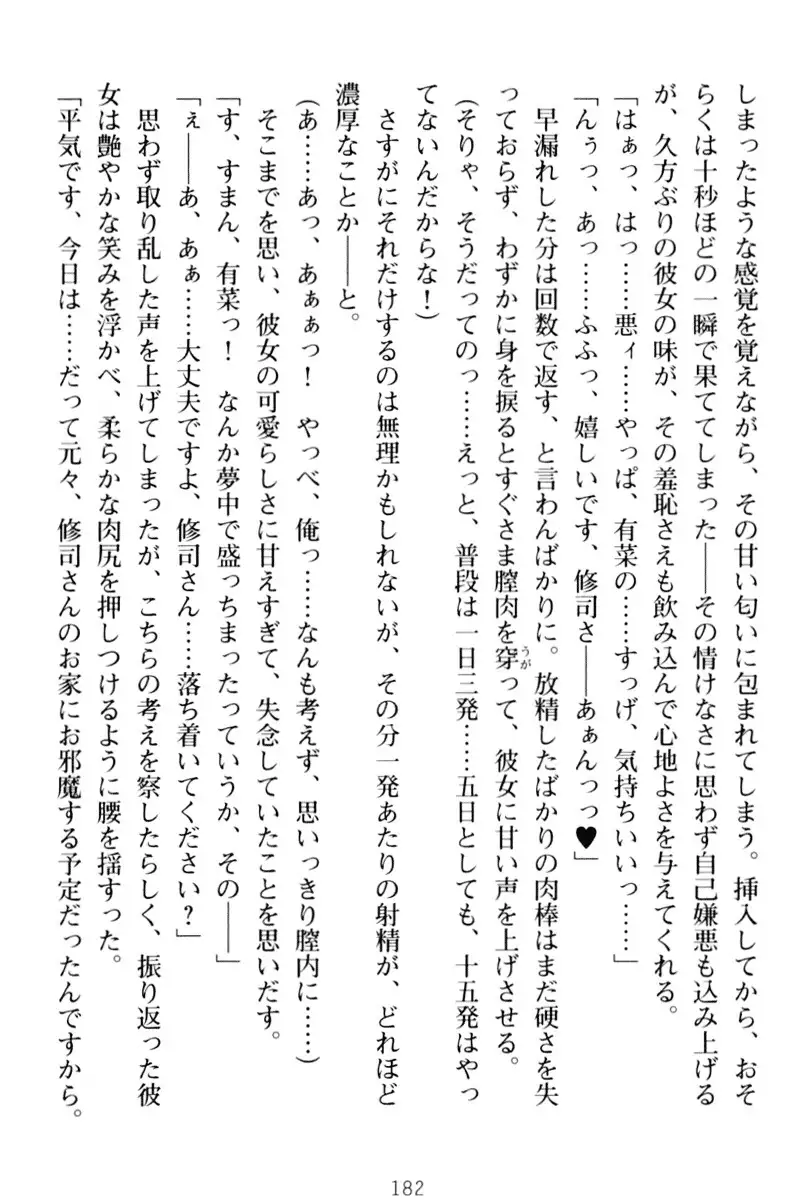 しまったような感覚を覚えながら、その甘い匂いに包まれてしまう。挿入してから、おそ
らくは十秒ほどの一瞬で果ててしまった――その情けなさに思わず自己嫌悪も込み上げる
が、久方ぶりの彼女の味が、その羞恥さえも飲み込んで心地よさを与えてくれる。
「はぁっ、はっ……悪ィ……やっぱ、有菜の……すっげ、気持ちいいっ……」
「んぅっ、あっ……ふふっ、嬉しいです、修司さ――あぁんっっ♥」
早漏れした分は回数で返す、と言わんばかりに。放精したばかりの肉棒はまだ硬さを失
っておらず、わずかに身を捩るとすぐさま膣肉を穿って、彼女に甘い声を上げさせる。
うが
(そりゃ、そうだってのっ……えっと、普段は一日三発……五日としても、十五発はやっ
てないんだからな！)
さすがにそれだけするのは無理かもしれないが、その分一発あたりの射精が、どれほど
濃厚なことか――と。
(あ……あっ、あぁぁっ！　やっべ、俺っ……なんも考えず、思いっきり膣内に……)
そこまでを思い、彼女の可愛らしさに甘えすぎて、失念していたことを思いだす。
「す、すまん、有菜っ！　なんか夢中で盛っちまったっていうか、その――」
「ぇ――あ、あぁ……大丈夫ですよ、修司さん……落ち着いてください？」
思わず取り乱した声を上げてしまったが、こちらの考えを察したらしく、振り返った彼
女は艶やかな笑みを浮かべ、柔らかな肉尻を押しつけるように腰を揺すった。
「平気です、今日は……だって元々、修司さんのお家にお邪魔する予定だったんですから。
182